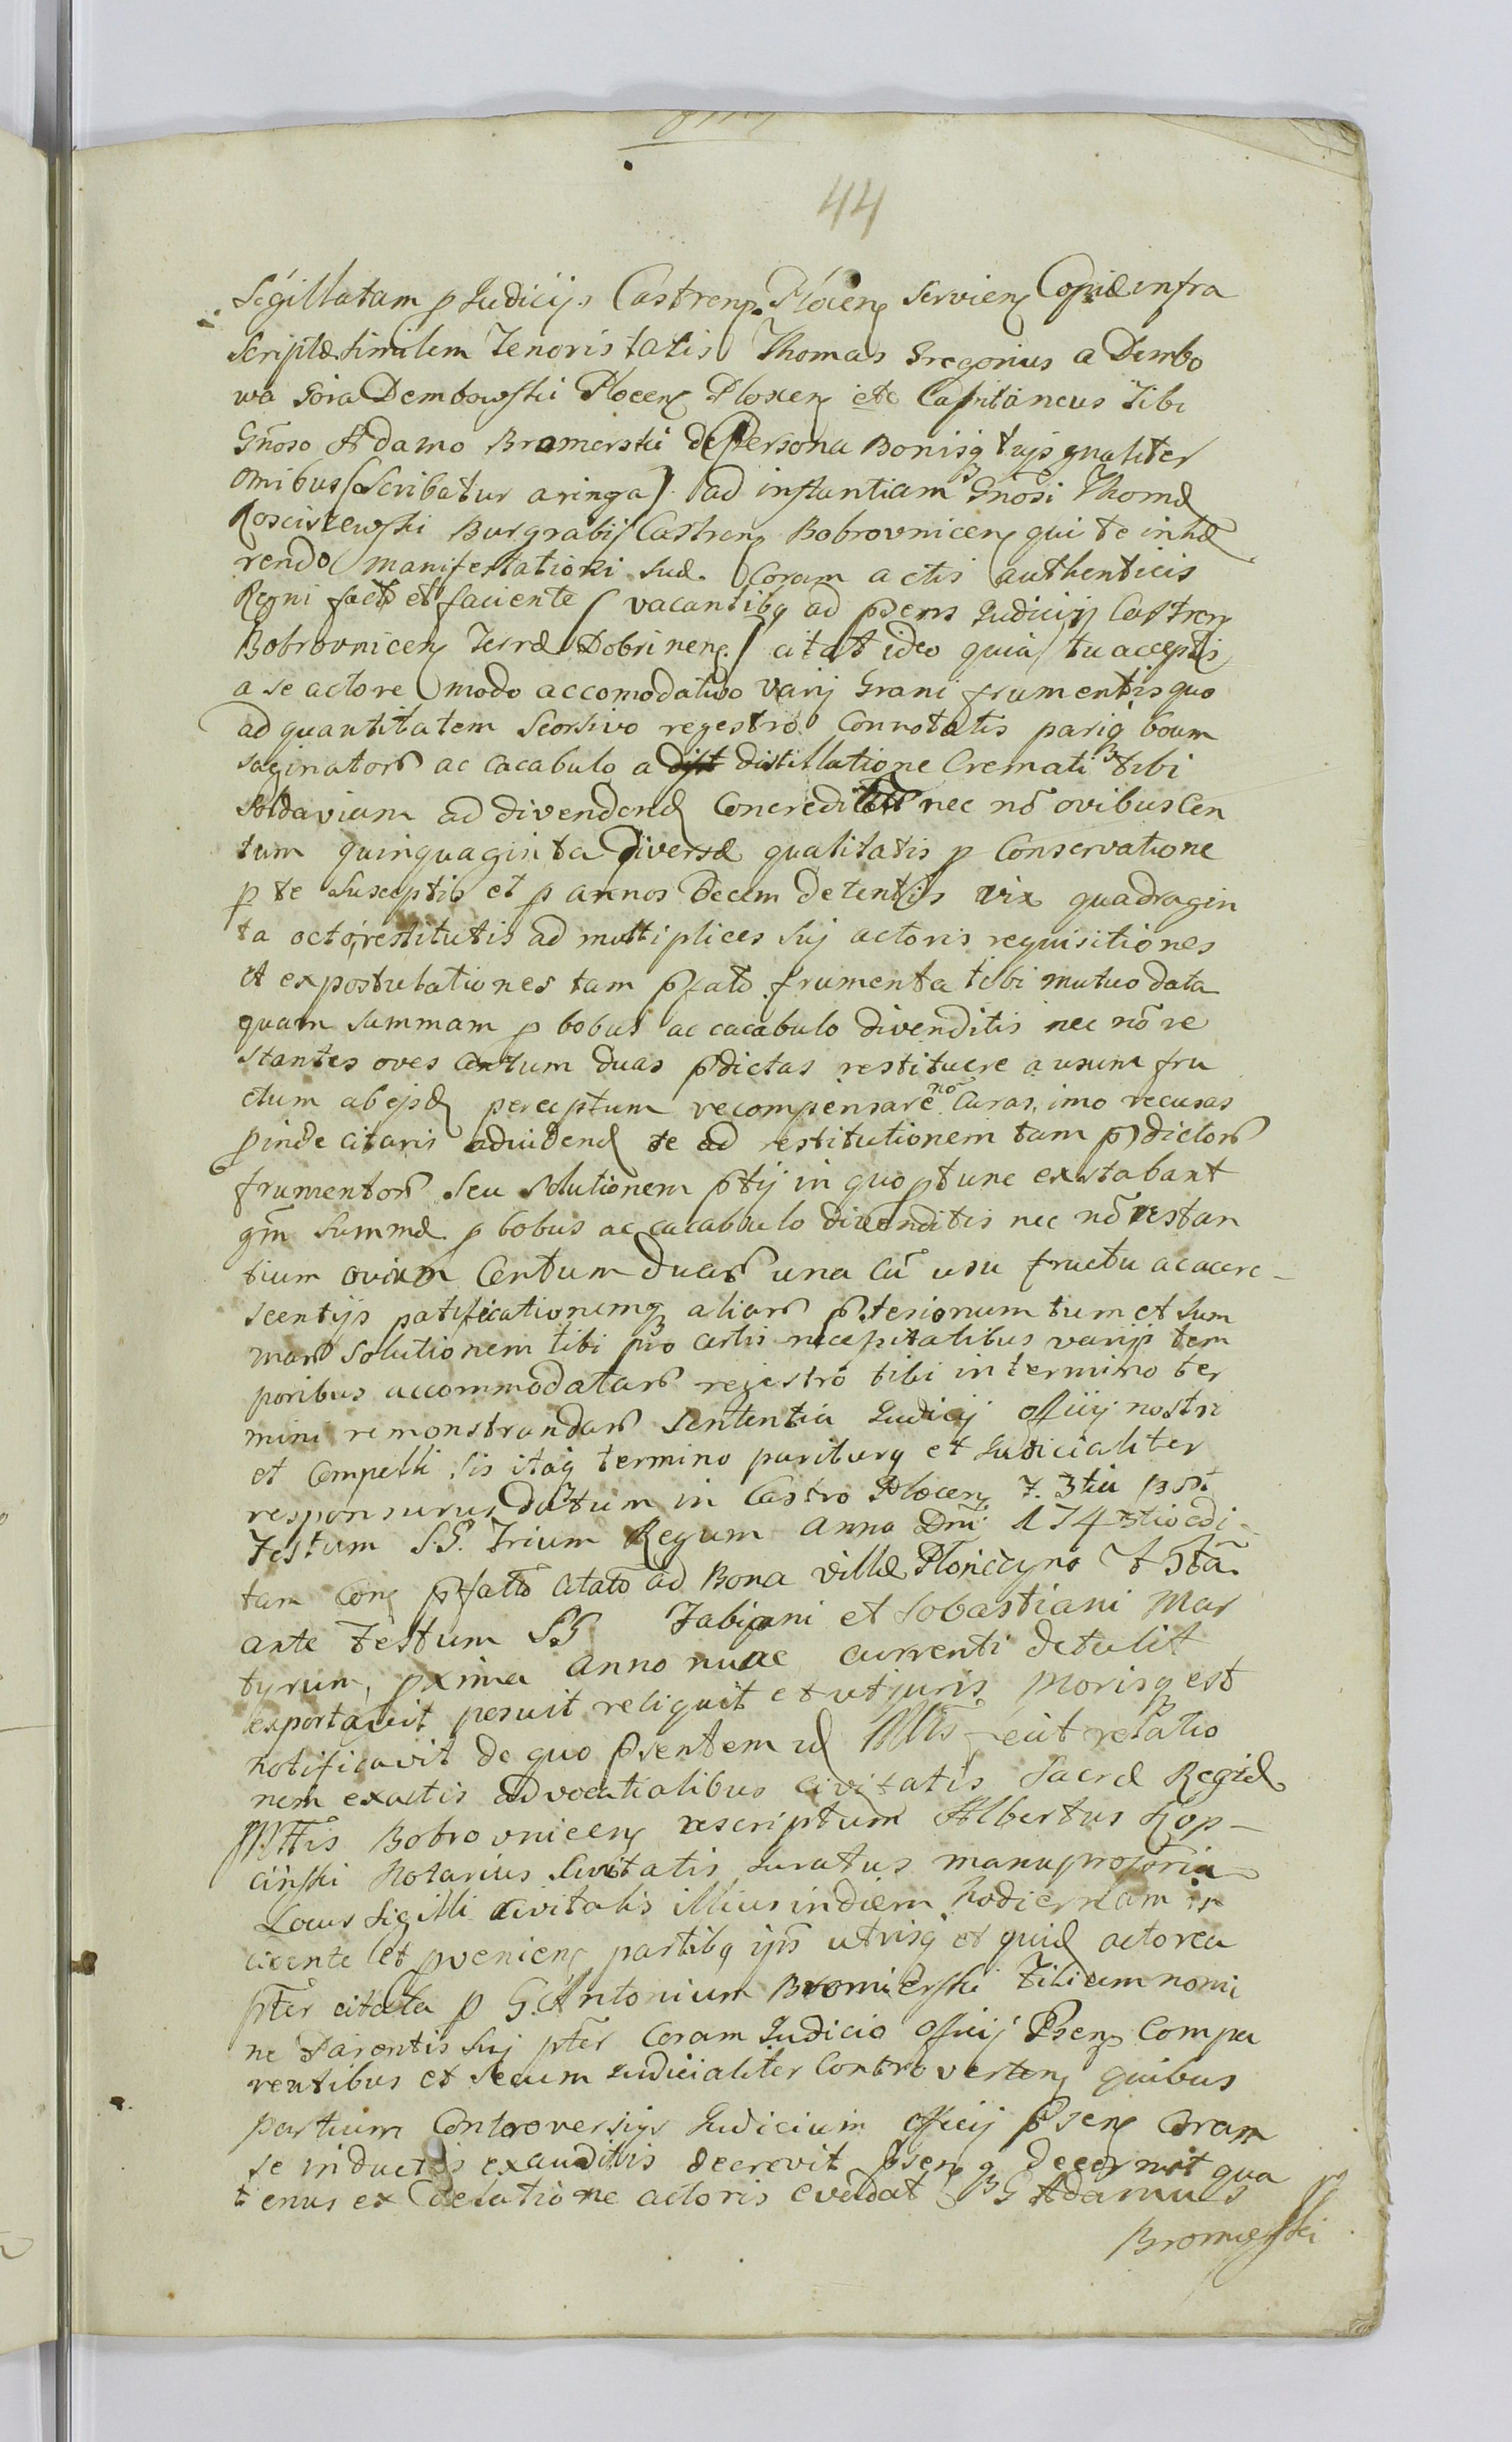 44
Sigillatam p Judicijs Castren Plocen servien Copiæ infra
scriptæ similem Tenoris talis Thomas Gregorius a Dembo
wa Gora Dembowski Plocen Ploxen etc Capitaneus Tibi
Gnoso Adamo Bromerski de Persona Bonisq tuis qualiter
omibus (Scribatur aringa) ad instantiam Gnosi Thomæ
Rosciszewski Burgrabij Castren Bobrovnicen qui te inhæ
rendo manifestationi suæ Coram actis authenticis
Regni factæ et faciente vacantibq ad psens Judicium Castren
Bobrovnicen Terræ Dobrinen citat ideo quia tu acceptis
a se actore modo accomodativo varij Grani frumentis quo
ad quantitatem seorsivo regestro Connotatis pariq boum
saginator ac cacabulo a dist distillatione Cremati tibi
Soldaviam ad divendend Concreditor nec no ovibus Cen
tum quinquaginta diversæ qualitatis p Conservatione
p te susceptis et p annos Decem detentis vix quadragin
ta octo restitutis ad multiplices sui actoris requisitiones
et expostulationes tam pfata frumenta tibi mutuo data
quam summam p bobus ac cacabulo divenditis nec no re
stantes oves Centum duas pdictas restituere ac usum fru
ctum ab ejsd perceptum recompensare no Curas, imo recusas
pinde citaris adiudend te ad restitutionem tam pdictor
frumentor seu solutionem ptij in quo ptunc exstabant
qm summæ p bobus ac cacabulo divenditis nec no restan
tium ovium Centum duar una cu usu fructu ac accre-
scentijs patificationemq aliar ptensionum tum et sum
mar solutionem tibi pro certis necessitatibus varijs tem
poribus accommodatar rejestro tibi in termino ter
mini remonstrandar sententia Judicij officij nostri
et Compelli sis itaq termino pariturq et Judicialiter
responsurus Datum in Castro Plocen F. 3tia post
Festum S.S. Trium Regum Anno Dni 1743tio edi-
tam Con pfato citato ad Bona villæ Płonczyno F 5ta
ante Festum SS Fabiani et Sebastiani Mar
tyrum, pxima anno nunc currenti detulit
exportavit posuit reliquit et ut juris morisq est
notificavit de quo psentem id Mttis fecit relatio
nem ex actis advocatialibus civitatis Sacræ Regiæ
Mttis Bobrovnicen rescriptum Albertus Kop-
cinski Notarius Civitatis Juratus manu propria
Locus Sigilli Civitatis illius in diem hodiernam in
cicente et pvenien partibq ijs utrisq et quid actorea
pter citata p G. Antonium Bromierski Filium nomi
ne Parentis sui pter Coram Judicio Officij Psen Compa
rentibus et secum Judicialiter Controverten quibus
partium Controversijs Judicium Officij Psen Coram
se inductis exauditis decrevit psenq decernit qua
tenus ex delatione actoris evadat G Adamus
Bromierski